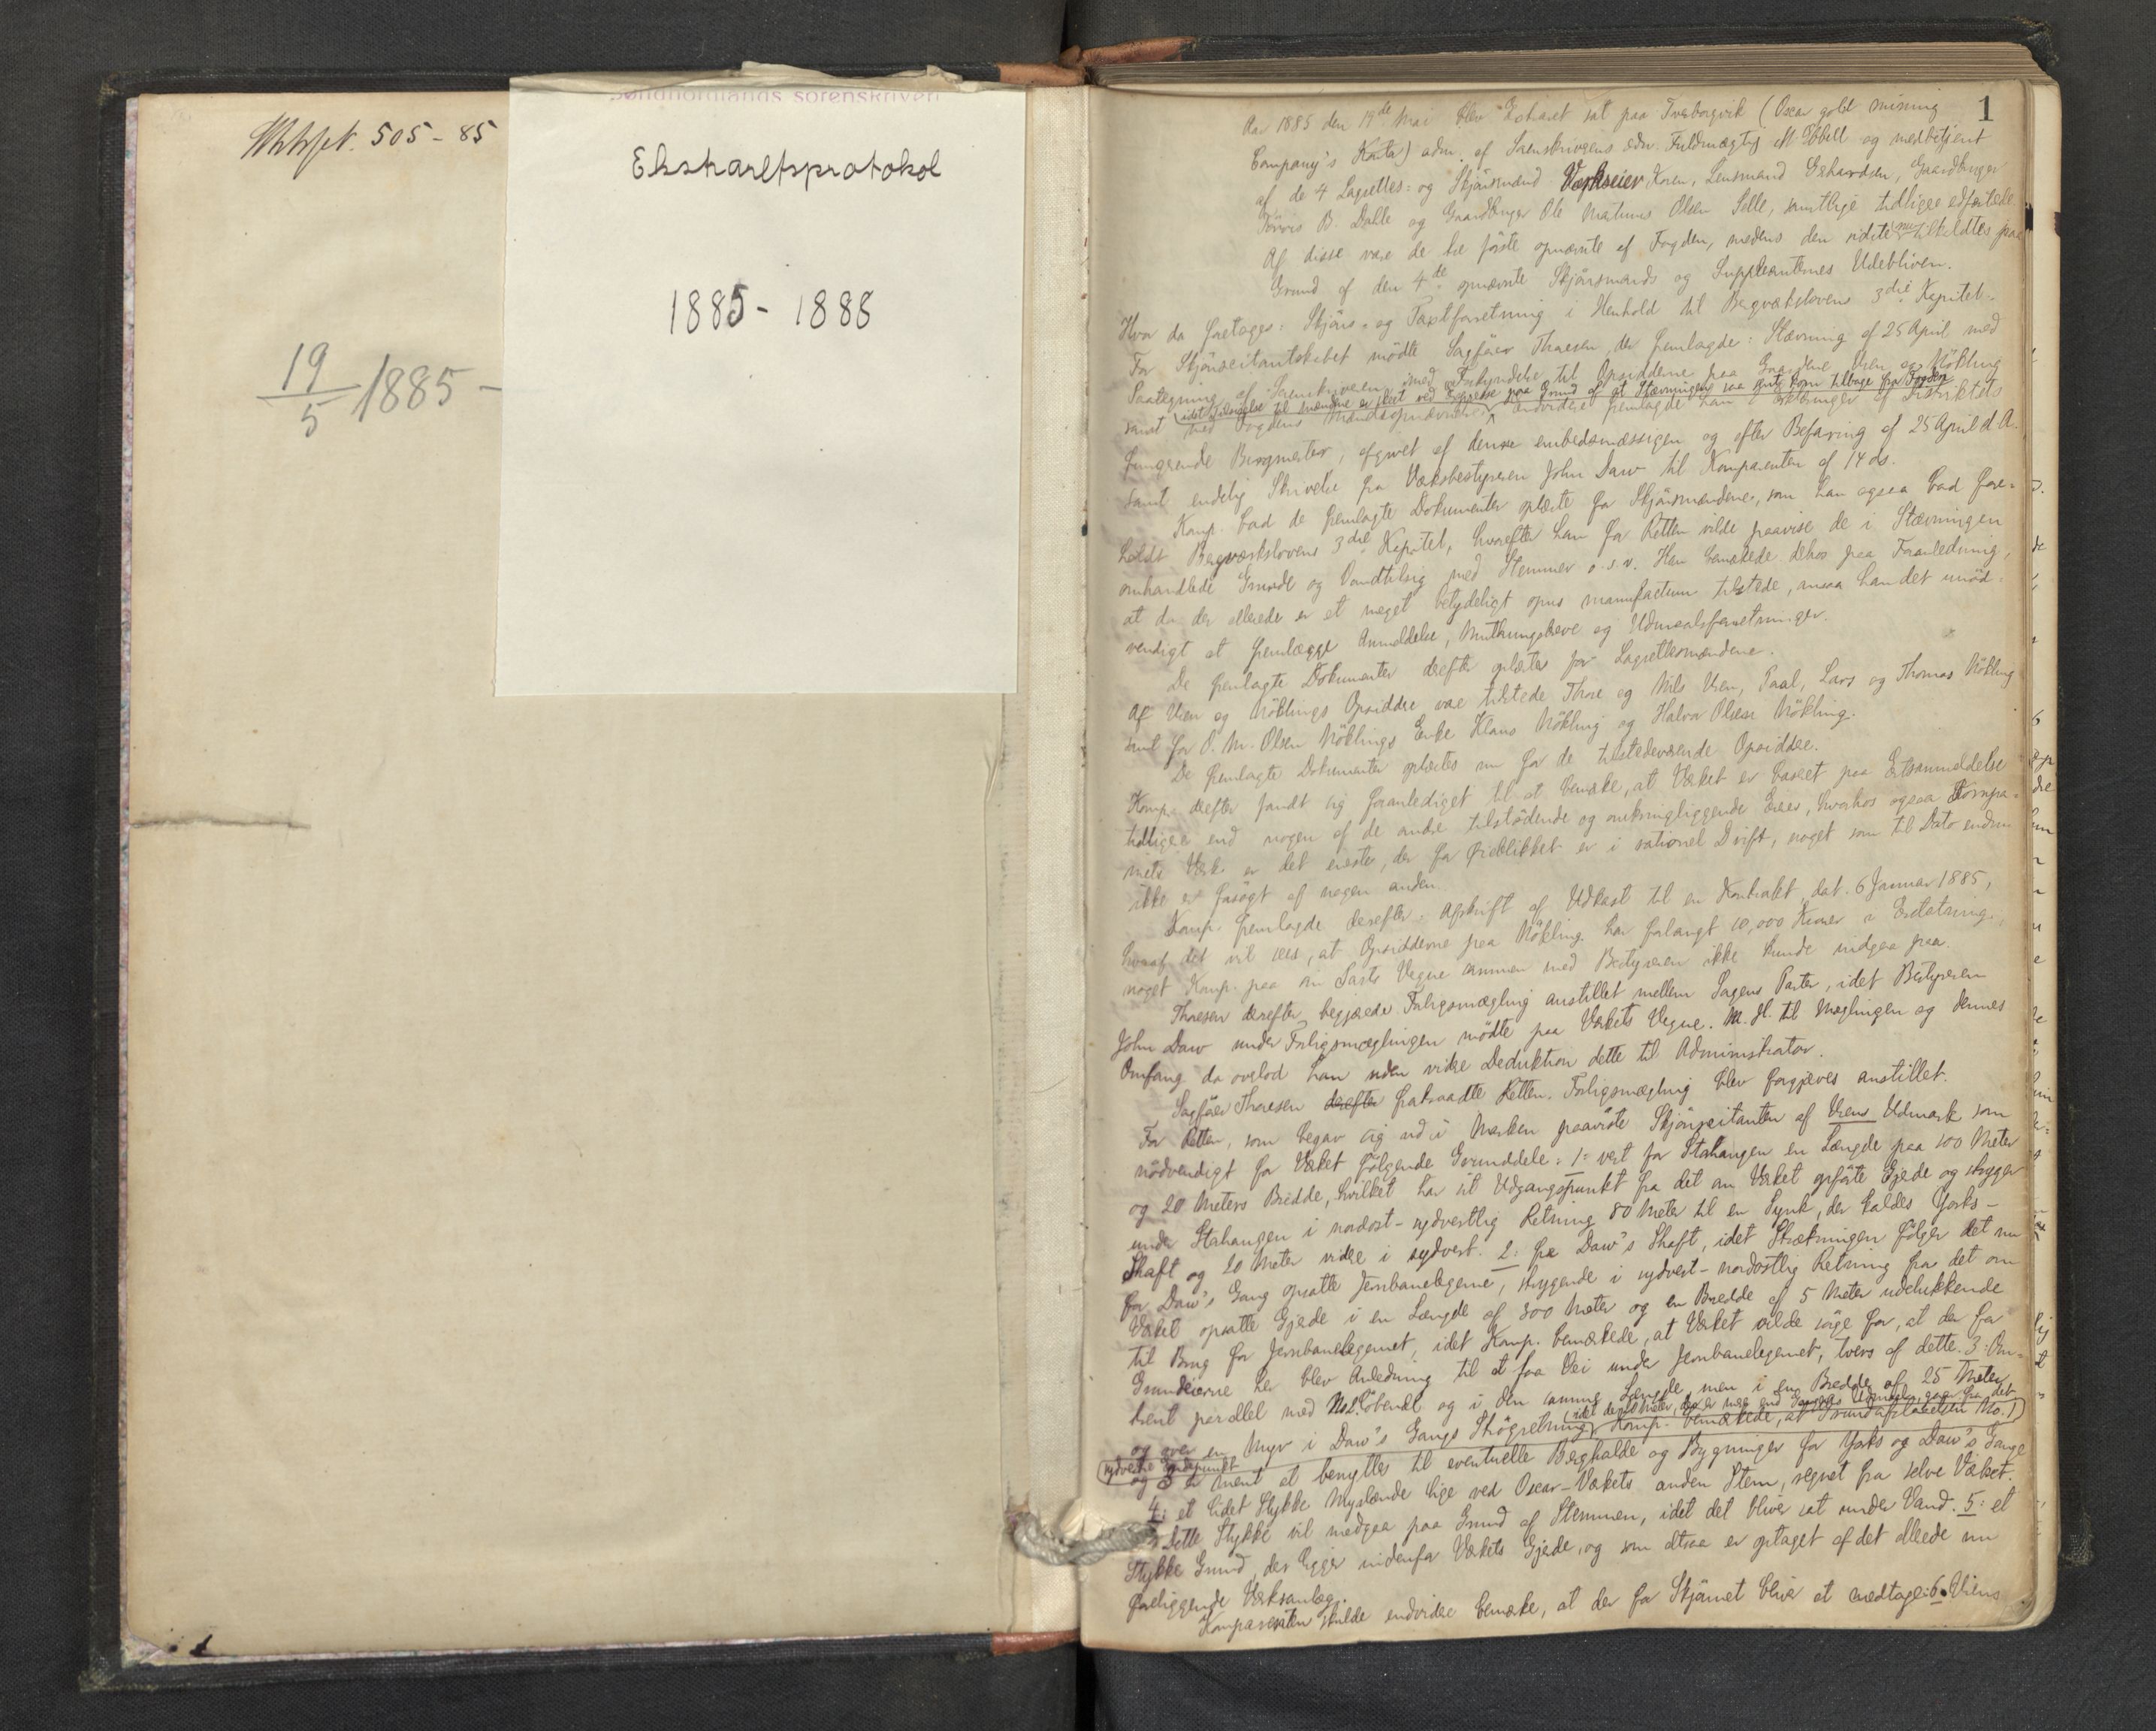 505-85
Søndhordlands sorenskriveri
Ekstraretsprotokol
1885 - 1888
19/5 1885 -
1
Aar 1885 den 19de Mai blev Extraret sat paa Tverborgvik (Oscar gold mining
Company's Kontor) adm. af Sorenskriverens edsv. Fuldmægtig M. Ebbell og medbetjent
af de 4 Lagrettes- og Skjønsmænd Værkseier Koren, Lensmand Gerhardsen, Gaardbruger
B. Dahle og Gaardbruger Ole Martinus Olsen Selle, samtlige tidligere edfæstede.
Af disse vare de tre første opnævnte af Fogden, medens den sidste nu tilkaldtes paa
Grund af den 4de opnævnte Skjønsmands og Suppleanternes Udebliven.
Hvor da foretoges: Skjøns- og Taxtforretning i Henhold til Bergværkslovens 3die Kapitel.
For Skjønscitantskabet mødte Sagfører Thoresen, der fremlagde: Stævning af 25 April med
Paategning af Sorenskriveren, med Forkyndelse til Opsidderne paa Gaardene Vien og Nökling
(idet Tilsigelse til Mændene er skeet ved Expresse paa Grund af at Stævningen saa sent kom tilbage fra Fogden)
samt med Fogdens Mandsopnævnelse. Endvidere fremlagde han Erklæringer af Distriktets
fungerende Bergmester, afgivet af denne embedsmæssigen og efter Befaring af 25 April d. A.
samt endelig Skrivelse fra Værksbestyreren John Daw til Komparenten af 14 ds.
Komp. bad de fremlagte Dokumenter oplæste for Skjønsmændene, som han ogsaa bad fore-
holdt Bergværkslovens 3die Kapitel, hvorefter han for Retten vilde paavise de i Stævningen
omhandlede Grunde og Vandtilsig med Stemmer o.s.v. Han bemærkede derhos paa Foranledning,
at da der allerede er et meget betydeligt opus manufactum tilstede, ansaa han det unød-
vendigt at fremlægge Anmeldelse, Muthungsbreve og Udmaalsforretninger.
De fremlagte Dokumenter derefter oplæstes for Lagrettesmændene.
Af Vien og Nöklings Opsiddere vare tilstede Thore og Nils Vien, Paal, Lars og Thomas Nökling
samt for O. M. Olsen Nöklings Enke Klaus Nökling og Halvor Olsen Nökling.
De fremlagte Dokumenter oplæstes nu for de tilstedeværende Opsiddere.
Komp. derefter fandt sig foranlediget til at bemærke, at Værket er baseret paa Ertsanmeldelse
tidligere end nogen af de andre tilstødende og omkringliggende Gruber, hvorhos ogsaa Kompa-
niets Værk er det eneste, der for Øieblikket er i rationel Drift, noget som til Dato endnu
ikke er forsøgt af nogen anden.
Komp. fremlagde derefter: Afskrift af Udkast til en Kontrakt, dat. 6 Januar 1885,
hvoraf det vil sees, at Opsidderne paa Nökling har forlangt 10,000 Kroner i Erstatning,
noget Komp. paa sin Parts Vegne sammen med Bestyreren ikke kunde indgaa paa.
Thoresen derefter begjærede Forligsmægling anstillet mellem Sagens Parter, idet Bestyreren
John Daw under Forligsmæglingen mødte paa Værkets Vegne. M. H. til Mæglingen og dennes
Omfang da overlod han uden videre Deduktion dette til Administrator.
Sagfører Thoresen derefter fratraadte Retten. Forligsmægling blev forgjæves anstillet.
For Retten, som begav sig ud i Marken paaviste Skjønscitanten af Viens Udmark som
nödvendigt for Værket følgende Grunddele: 1: vest for Storhaugen en Længde paa 100 Meter
og 20 Meters Bredde, hvilket har sit Udgangspunkt fra det om Værket opførte Gjærde og stryger
under Storhaugen i nordost-sydvestlig Retning 80 Meter til en Synk, der kaldes Yorks-
Shaft og 20 Meter videre i sydvest. 2: fra Daw's Shaft, idet Strækningen følger det nu
for Daw's Gang opsatte Jernbanelegeme, strygende i sydvest-nordostlig Retning fra det om
Værket opsatte Gjærde i en Længde af 300 Meter og en Bredde af 5 Meter udelukkende
til Brug for Jernbanelegemet, idet Komp. bemærkede, at Værket vilde sørge for, at der for
Grundeierne her blev Anledning til at faa Vei under Jernbanelegemet, tvers af dette. 3: Om-
trent parallel med No 2. løbende og i den samme Længde, men i en Bredde af 25 Meter
og over en Myr i Daw's Gangs Strøgretning. Komp. bemærkede, at Grundafstaaelsen No. 1
og 3 er ment at benyttes til eventuelle Berghalde og Bygninger for Yorks og Daw's Gange
4: et lidet Stykke Myrlænde lige ved Oscar-Værkets anden Stem, regnet fra selve Værket.
Dette Stykke vil medgaa paa Grund af Stemmen, idet det bliver sat under Vand. 5: et
Stykke Grund, der ligger indenfor Værkets Gjærde, og som altsaa er optaget af det allerede nu
foreliggende Værksanlæg.
Komparenten skulde endvidere bemærke, at der for Skjønnet bliver at medtage: 6. Viens